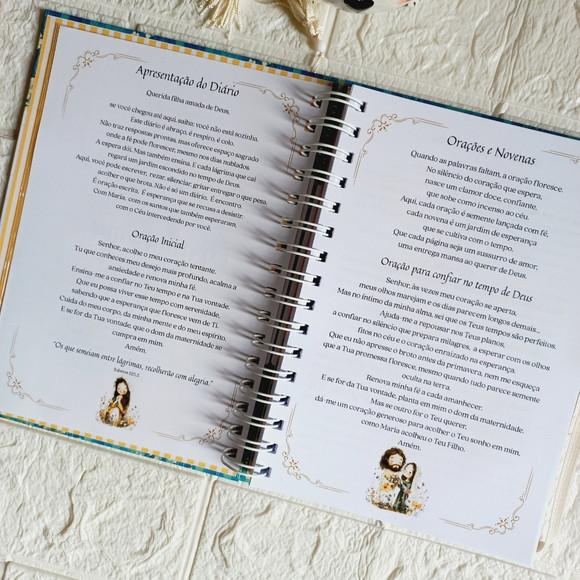 Apresentação do Diário
Querida filha amada de Deus,
se você chegou até aqui, saiba: você não está sozinha.
Este diário é abraço, é respiro, é colo.
Não traz respostas prontas, mas oferece espaço sagrado
onde a fé pode florescer, mesmo nos dias nublados.
A espera dói. Mas também ensina. E cada lágrima que cai
regará um jardim escondido no tempo de Deus.
Aqui, você pode escrever, rezar, silenciar, gritar entregar o que pesa,
acolher o que brota. Não é só um diário. É encontro.
É oração escrita. É esperança que se recusa a desistir.
Com Maria, com os santos que também esperaram,
com o Céu intercedendo por você.
Oração Inicial
Senhor, acolhe o meu coração tentante.
Tu que conheces meu desejo mais profundo, acalma a
ansiedade e renova minha fé.
Ensina-me a confiar no Teu tempo e na Tua vontade,
Que eu possa viver esse tempo com serenidade,
sabendo que a esperança que floresce vem de Ti.
Cuida do meu corpo, da minha mente e do meu espírito.
E se for da Tua vontade, que o dom da maternidade se
cumpra em mim.
Amém.
"Os que semeiam entre lágrimas, recolherão com alegria."
Orações e Novenas
Quando as palavras faltam, a oração floresce.
No silêncio do coração que espera,
nasce um clamor doce, confiante,
que sobe como incenso ao céu.
Aqui, cada oração é semente lançada com fé,
cada novena é um jardim de esperança
que se cultiva com o tempo.
Que cada página seja um sussurro de amor,
uma entrega mansa ao querer de Deus.
Oração para confiar no tempo de Deus
Senhor, às vezes meu coração se aperta,
meus olhos marejam e os dias parecem longos demais...
Mas no íntimo da minha alma, sei que os Teus tempos são perfeitos.
Ajuda-me a repousar nos Teus planos,
a confiar no silêncio que prepara milagres, a esperar com os olhos
fitos no céu e o coração enraizado na esperança.
Que eu não apresse o broto antes da primavera, nem me esqueça
que a Tua promessa floresce, mesmo quando tudo parece semente
oculta na terra.
Renova minha fé a cada amanhecer.
E se for da Tua vontade, planta em mim o dom da maternidade.
Mas se outro for o Teu querer,
dá-me um coração generoso para acolher o Teu sonho em mim,
como Maria acolheu o Teu Filho.
Amém.